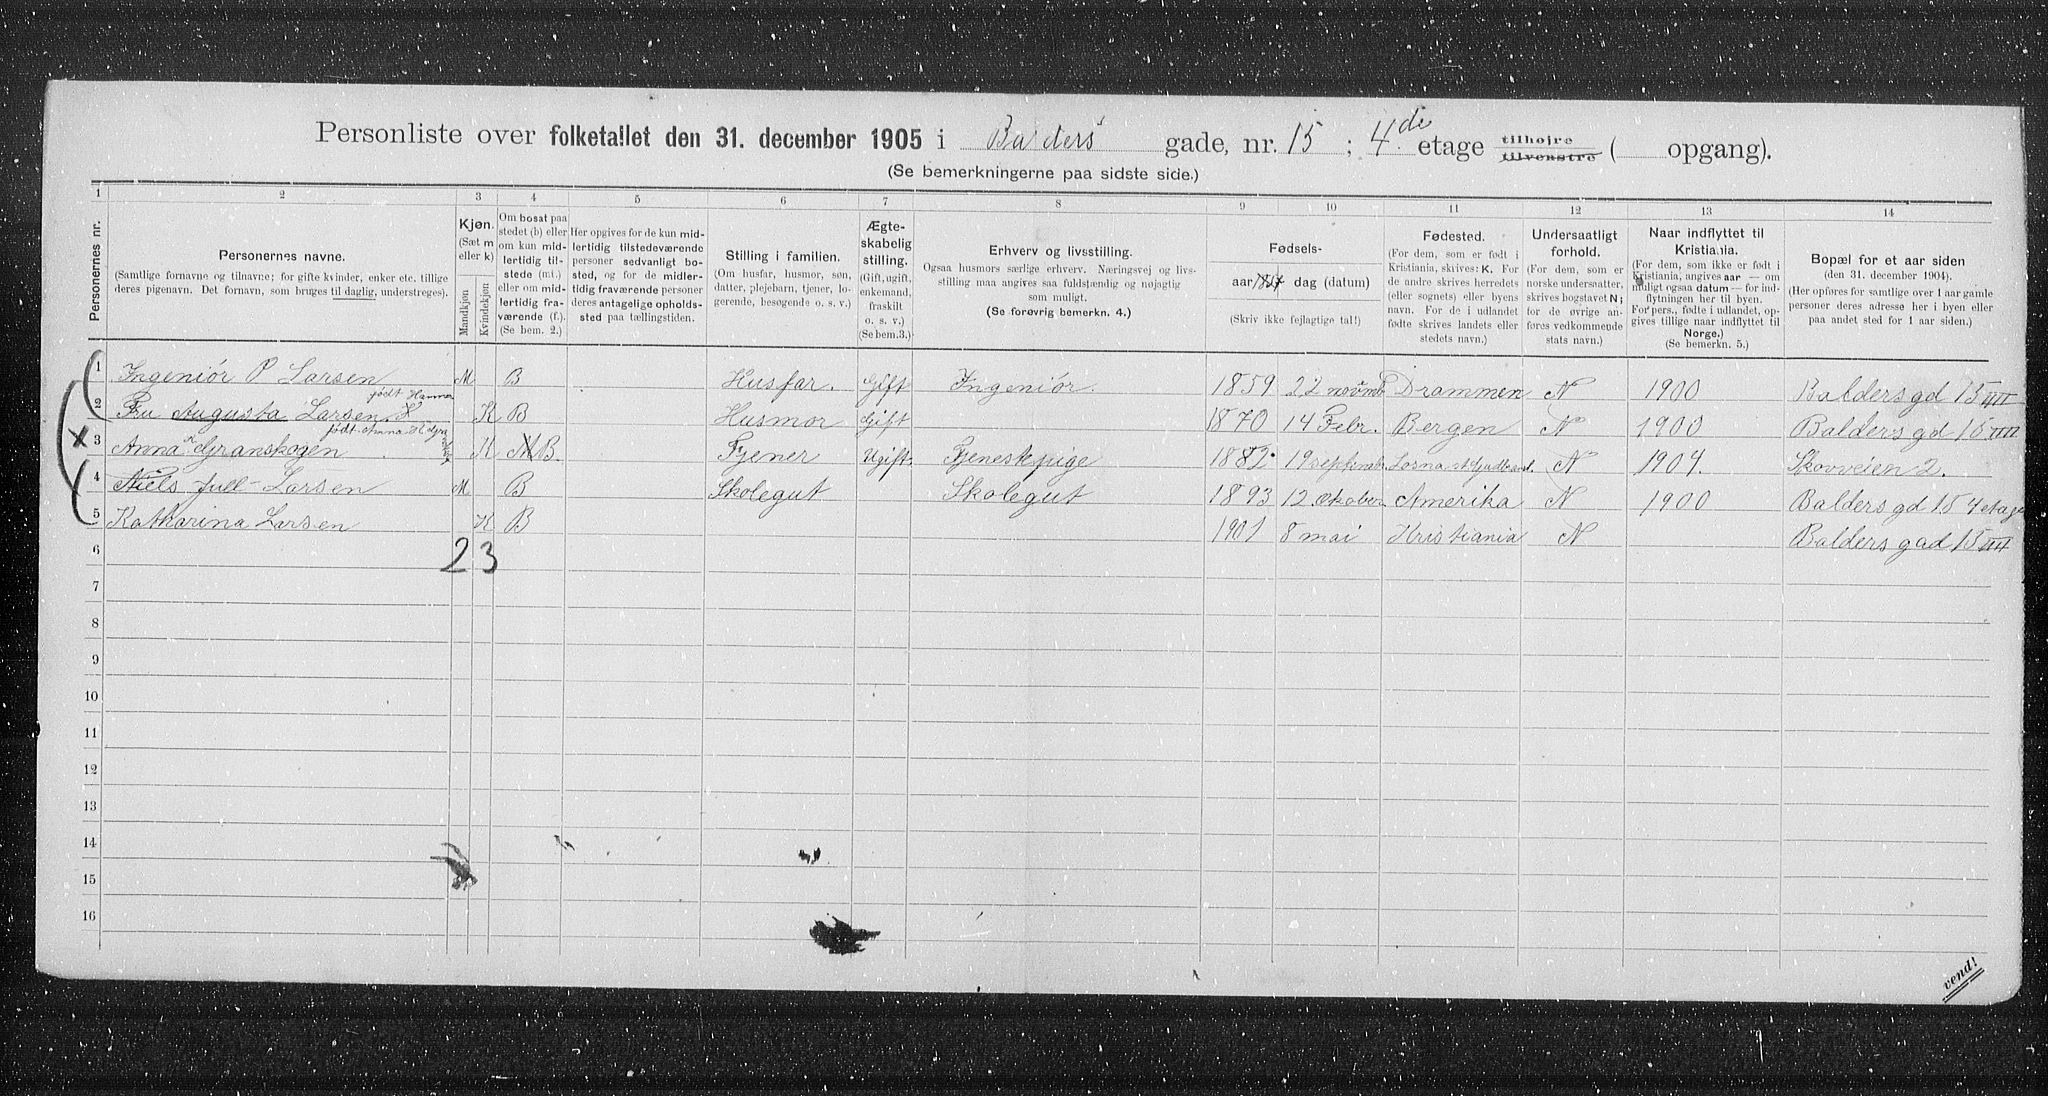 Personliste over folketallet den 31. december 1905 i Balders gade, nr. 15 ; 4de etage tilhøjre tilvenstre ( opgang).
(Se bemerkningerne paa sidste side.)
1 2 3 4 5 6 7 8 9 10 11 12 13 14
Personernes nr.
Personernes navne.
(Samtlige fornavne og tilnavne; for gifte kvinder, enker etc. tillige
deres pigenavn. Det fornavn, som bruges til daglig, understreges).
Kjøn.
(Sæt m
eller k)
Mandkjøn
Kvindekjøn
Om bosat paa
stedet (b) eller
om kun mid-
lertidig til-
stede (mt.)
eller om mid-
lertidig fra-
værende (f.).
(Se bem. 2.)
Her opgives for de kun mid-
lertidig tilstedeværende
personer sedvanlig bo-
sted, og for de midler-
tidig fraværende personer
deres antagelige opholds-
sted paa tællingstiden.
Stilling i familien.
(Om husfar, husmor, søn,
datter, plejebarn, tjener, lo-
gerende, besøgende o. s. v.)
Ægte-
skabelig
stilling.
(Gift, ugift,
enkemand,
fraskilt
o. s. v.)
(Se bem.3.)
Erhverv og livsstilling.
Ogsaa husmors særlige erhverv. Næringsvej og livs-
stilling maa angives saa fuldstændig og nøjagtig
som muligt.
(Se forøvrig bemerkn. 4.)
Fødsels-
aar dag (datum)
(Skriv ikke fejlagtige tal!)
Fødested.
(For dem, som er født i
Kristiania, skrives: K. For
de andre skrives herredets
(eller sognets) eller byens
navn. For de i udlandet
fødte skrives landets eller
stedets navn.)
Undersaatligt
forhold.
(For dem, som er
norske undersaatter,
skrives bogstavet N;
for de øvrige an-
føres vedkommende
stats navn.)
Naar indflyttet til
Kristiania.
(For dem, som ikke er født i
Kristiania, angives aar — om
muligt ogsaa datum — for ind-
flytningen her til byen.
For pers., fødte i udlandet, op-
gives tillige naar indflyttet til
Norge.)
(Se bemerkn. 5.)
Bopæl for et aar siden
(den 31. december 1904).
(Her opføres for samtlige over 1 aar gamle
personer deres adresse her i byen eller
paa andet sted for 1 aar siden.)
1 Ingeniør P Larsen M B Husfar. Gift Ingeniør. 1859 22 Drammen N 1900 Baldersgd 15 IIII
født Hammer
2 Fru Augusta Larsen K B Husmor Gift 1870 14 Febr. Bergen N 1900 Baldersgd 15 IIII
3 Anna Granskogen K B. Tjener Ugift Tjenestepige 1882 19 Losna N 1904. Skovveien 2.
4 Niels Jull-Larsen M B Skolegut Skolegut 1893 12 Amerika N 1900 Baldersgd 15 4 etage
5 Katharina Larsen K B 1901 8 mai Kristiania N Baldersgad 15 IIII
6 2 3
7
8
9
10
11
12
13
14
15
16
vend!